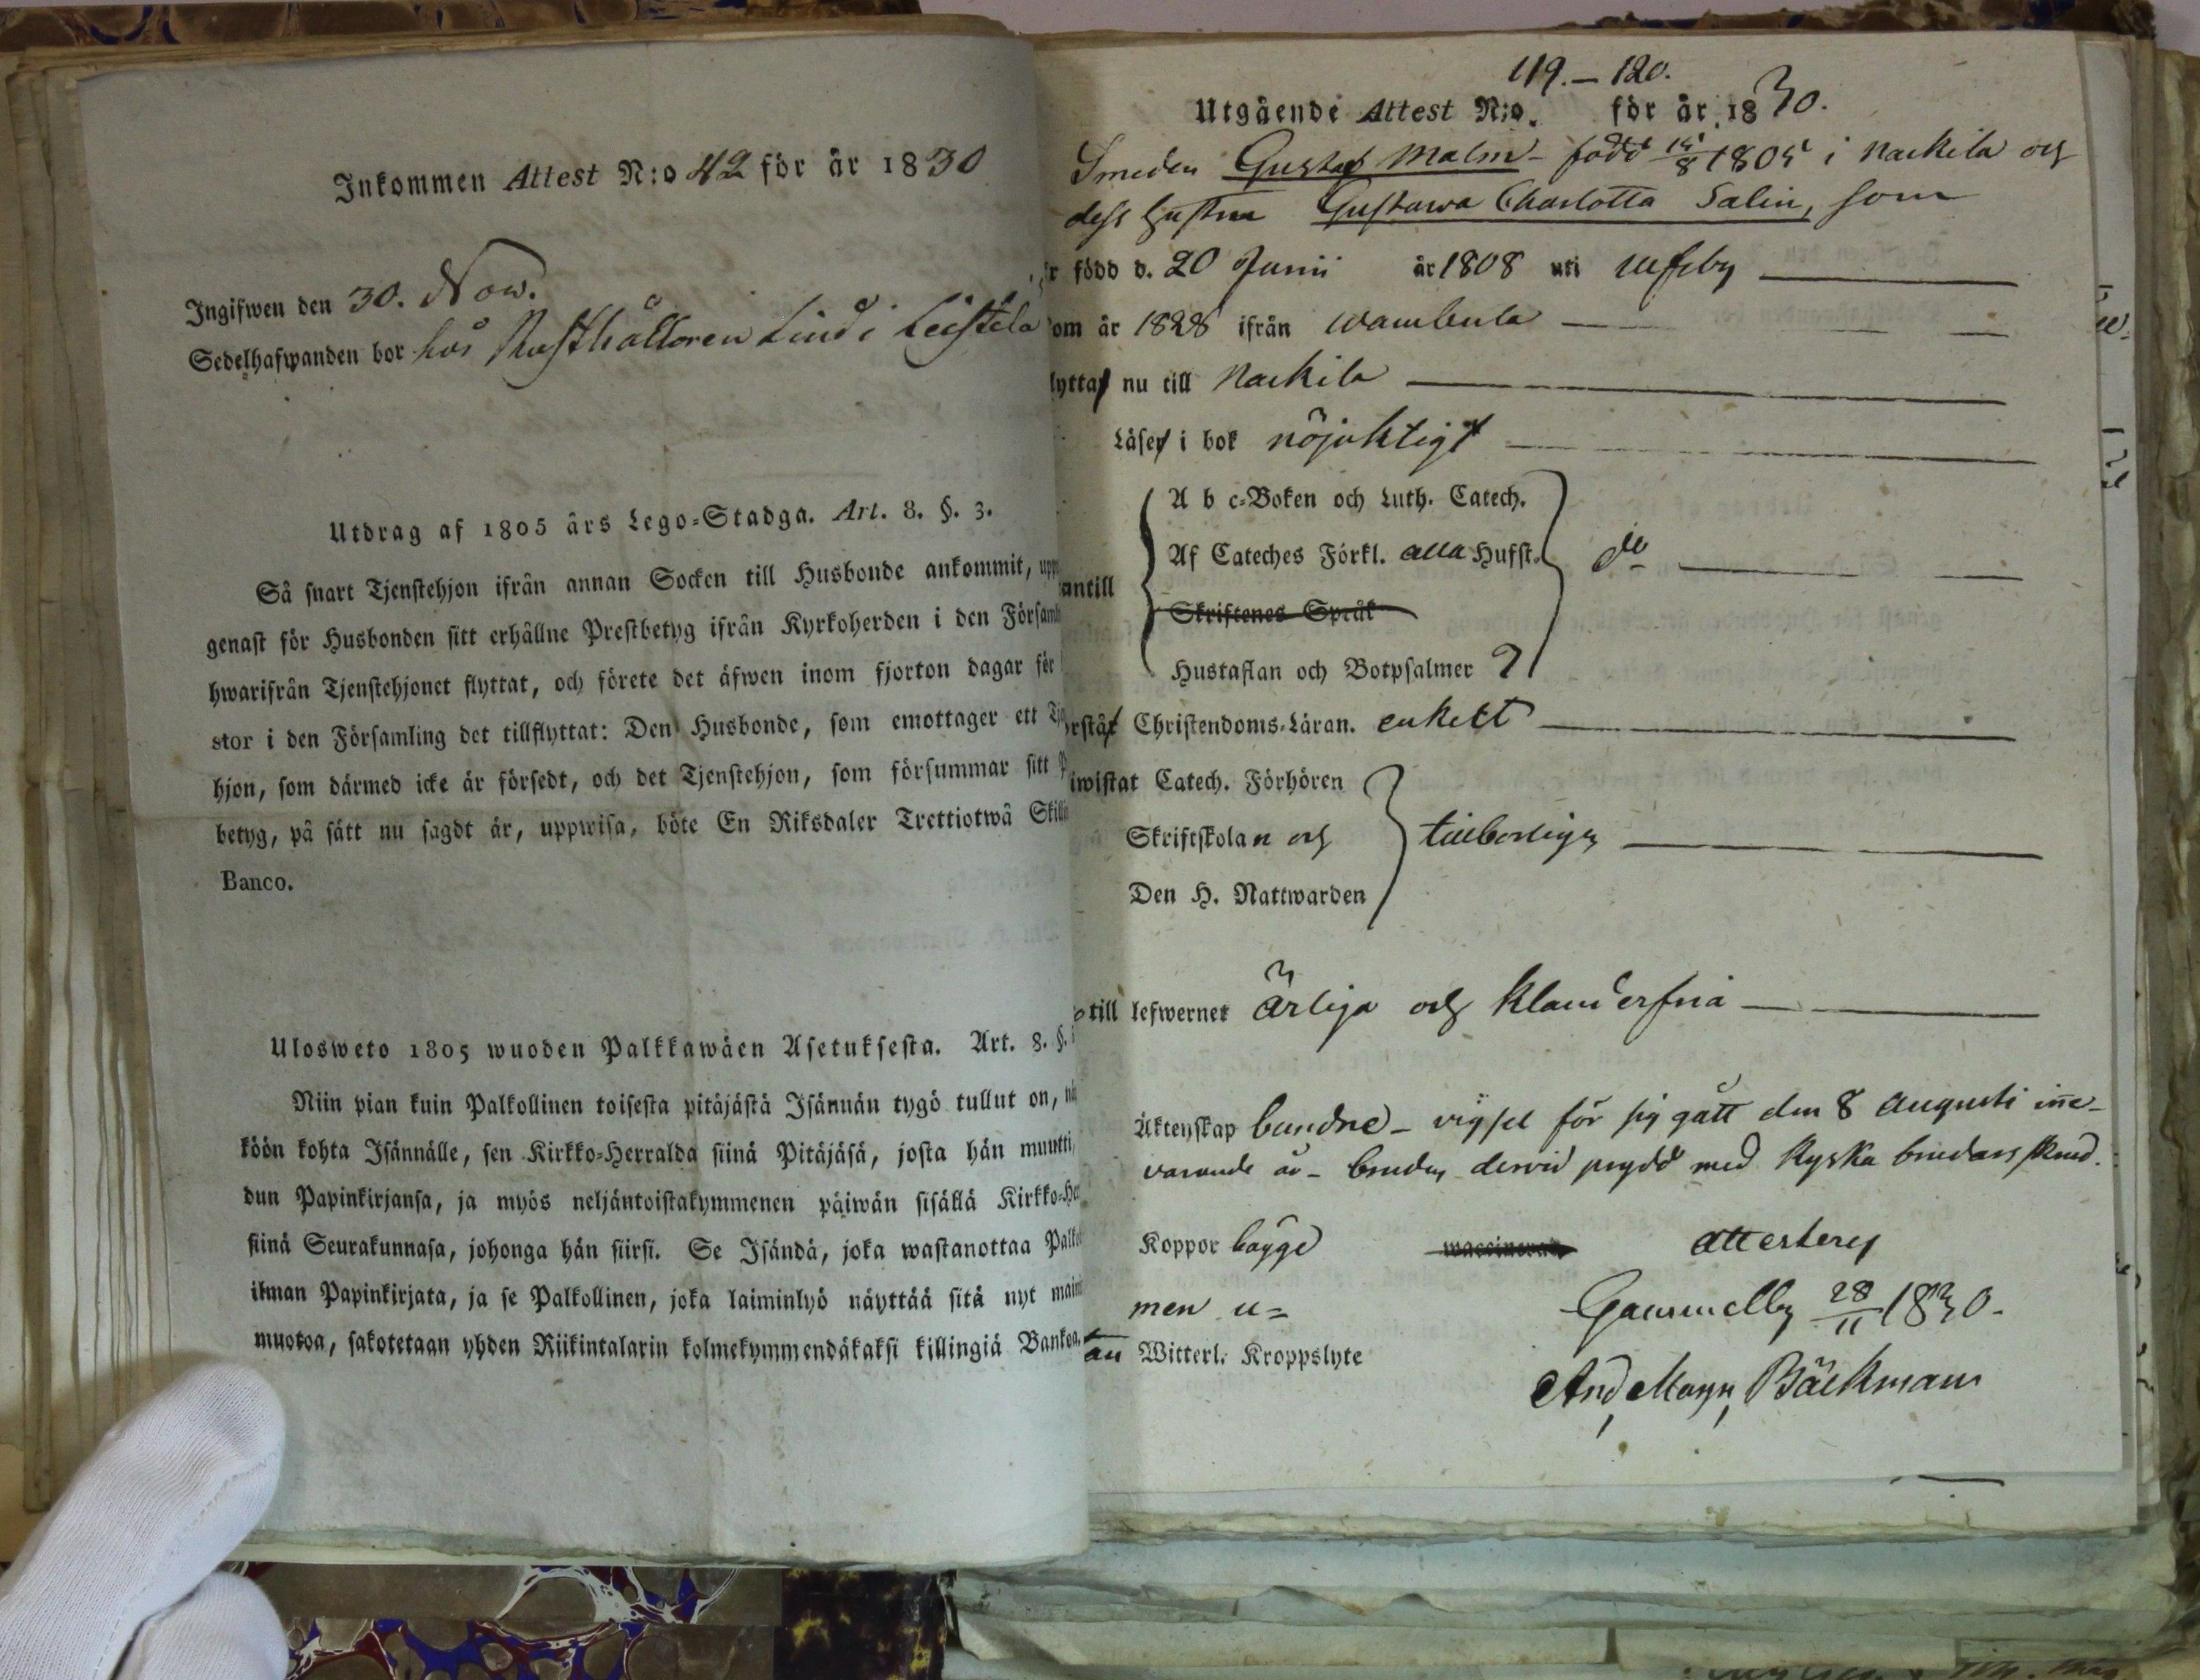 Inkommen Attest N:o 42 för år 1830
Ingifwen den 30. Nov.
Sedelhafwanden bor hos Rusthållaren Lind i Leistila
Utdrag af 1805 års Lego-Stadga. Art. 8. §. 3.
Så snart Tjenstehjon ifrån annan Socken till Husbonde ankommit,
genast för Husbonden sitt erhållne Prestbetyg ifrån Kyrkoherden i den
hwarifrån Tjenstehjonet flyttat, och förete det äfwen inom fjorton dagar för
stor i den Församling det tillflyttat: Den Husbonde, som emottager ett
hjon, som därmed icke är försedt, och det Tjenstehjon, som försummar sitt
betyg, på sätt nu sagdt är, uppwisa, böte En Riksdaler Trettiotwå
Banco.
Ulosweto 1805 wuoden Palkkawäen Asetuksesta. Art. 8. §.
Niin pian kuin Palkollinen toisesta pitäjästä Isännän tygö tullut on,
köön kohta Isännälle, sen Kirkko-Herralda siinä Pitäjäsä, josta hän muutti,
dun Papinkirjansa, ja myös neljäntoistakymmenen päiwän sisällä
siinä Seurakunnasa, johonga hän siirsi. Se Isändä, joka wastanottaa
ilman Papinkirjata, ja se Palkollinen, joka laiminlyö näyttää sitä nyt
muotoa, sakotetaan yhden Riikintalarin kolmekymmendäkaksi killingiä
119.–120.
Utgående Attest N:o. för år 1830.
Smeden Gustaf Malm – född 15/8 1805 i Nackila och
dess hustru Gustawa Charlotta Salin, som
född d. 20 Junii år 1808 uti Ulfsby
om år 1828 ifrån Wambula
lyttar nu till Nackila
Läser i bok nöjaktigt
antill
A b c-Boken och Luth. Catech.
Af Cateches Förkl. alla Hufst.
do
Skriftenes Språk
Hustaflan och Botpsalmer
rstår Christendoms-Läran. enkelt
iwistat Catech. Förhören
Skriftskolan och
tillbörligen
Den H. Nattwarden
till lefwernet ärliga och klanderfria
Äktenskap bundne – vigsel för sig gått den 8 Augusti inne-
varande år – bruden dervid prydd med kyska brudars skrud.
Koppor bägge
attesterer
men u=
Gammelby 28/11 1830.
an Witterl. Kroppslyte
And. Magn. Bäckman